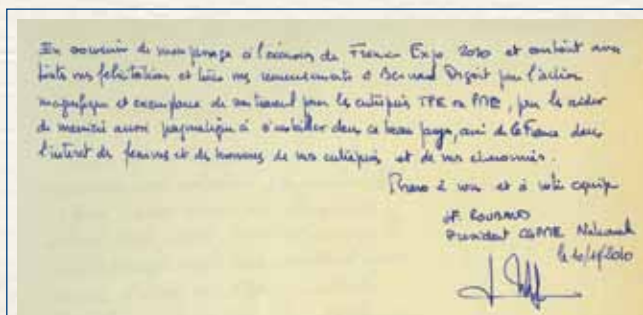 En souvenir de mon passage à l'occasion de France Expo 2010 et
toutes nos félicitations et nos remerciements à Bernard pour l'action
magnifique et exemplaire de son travail pour les entreprises TPE ou PME, pour les aider
de manière aussi pragmatique à s'installer dans ce beau pays, ami de la France dans
l'intérêt des femmes et des hommes de nos entreprises et de nos économies.
Bravo à vous et à votre équipe
JF. ROUBAUD
Président CGPME Nationale